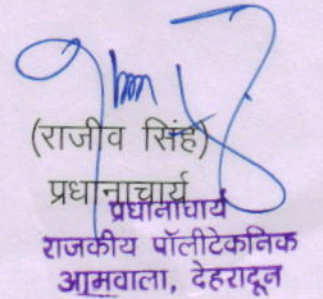 (राजीव सिंह)
प्रधानाचार्य
प्रधानाचार्य
राजकीय पॉलीटेकनिक
आमवाला, देहरादून